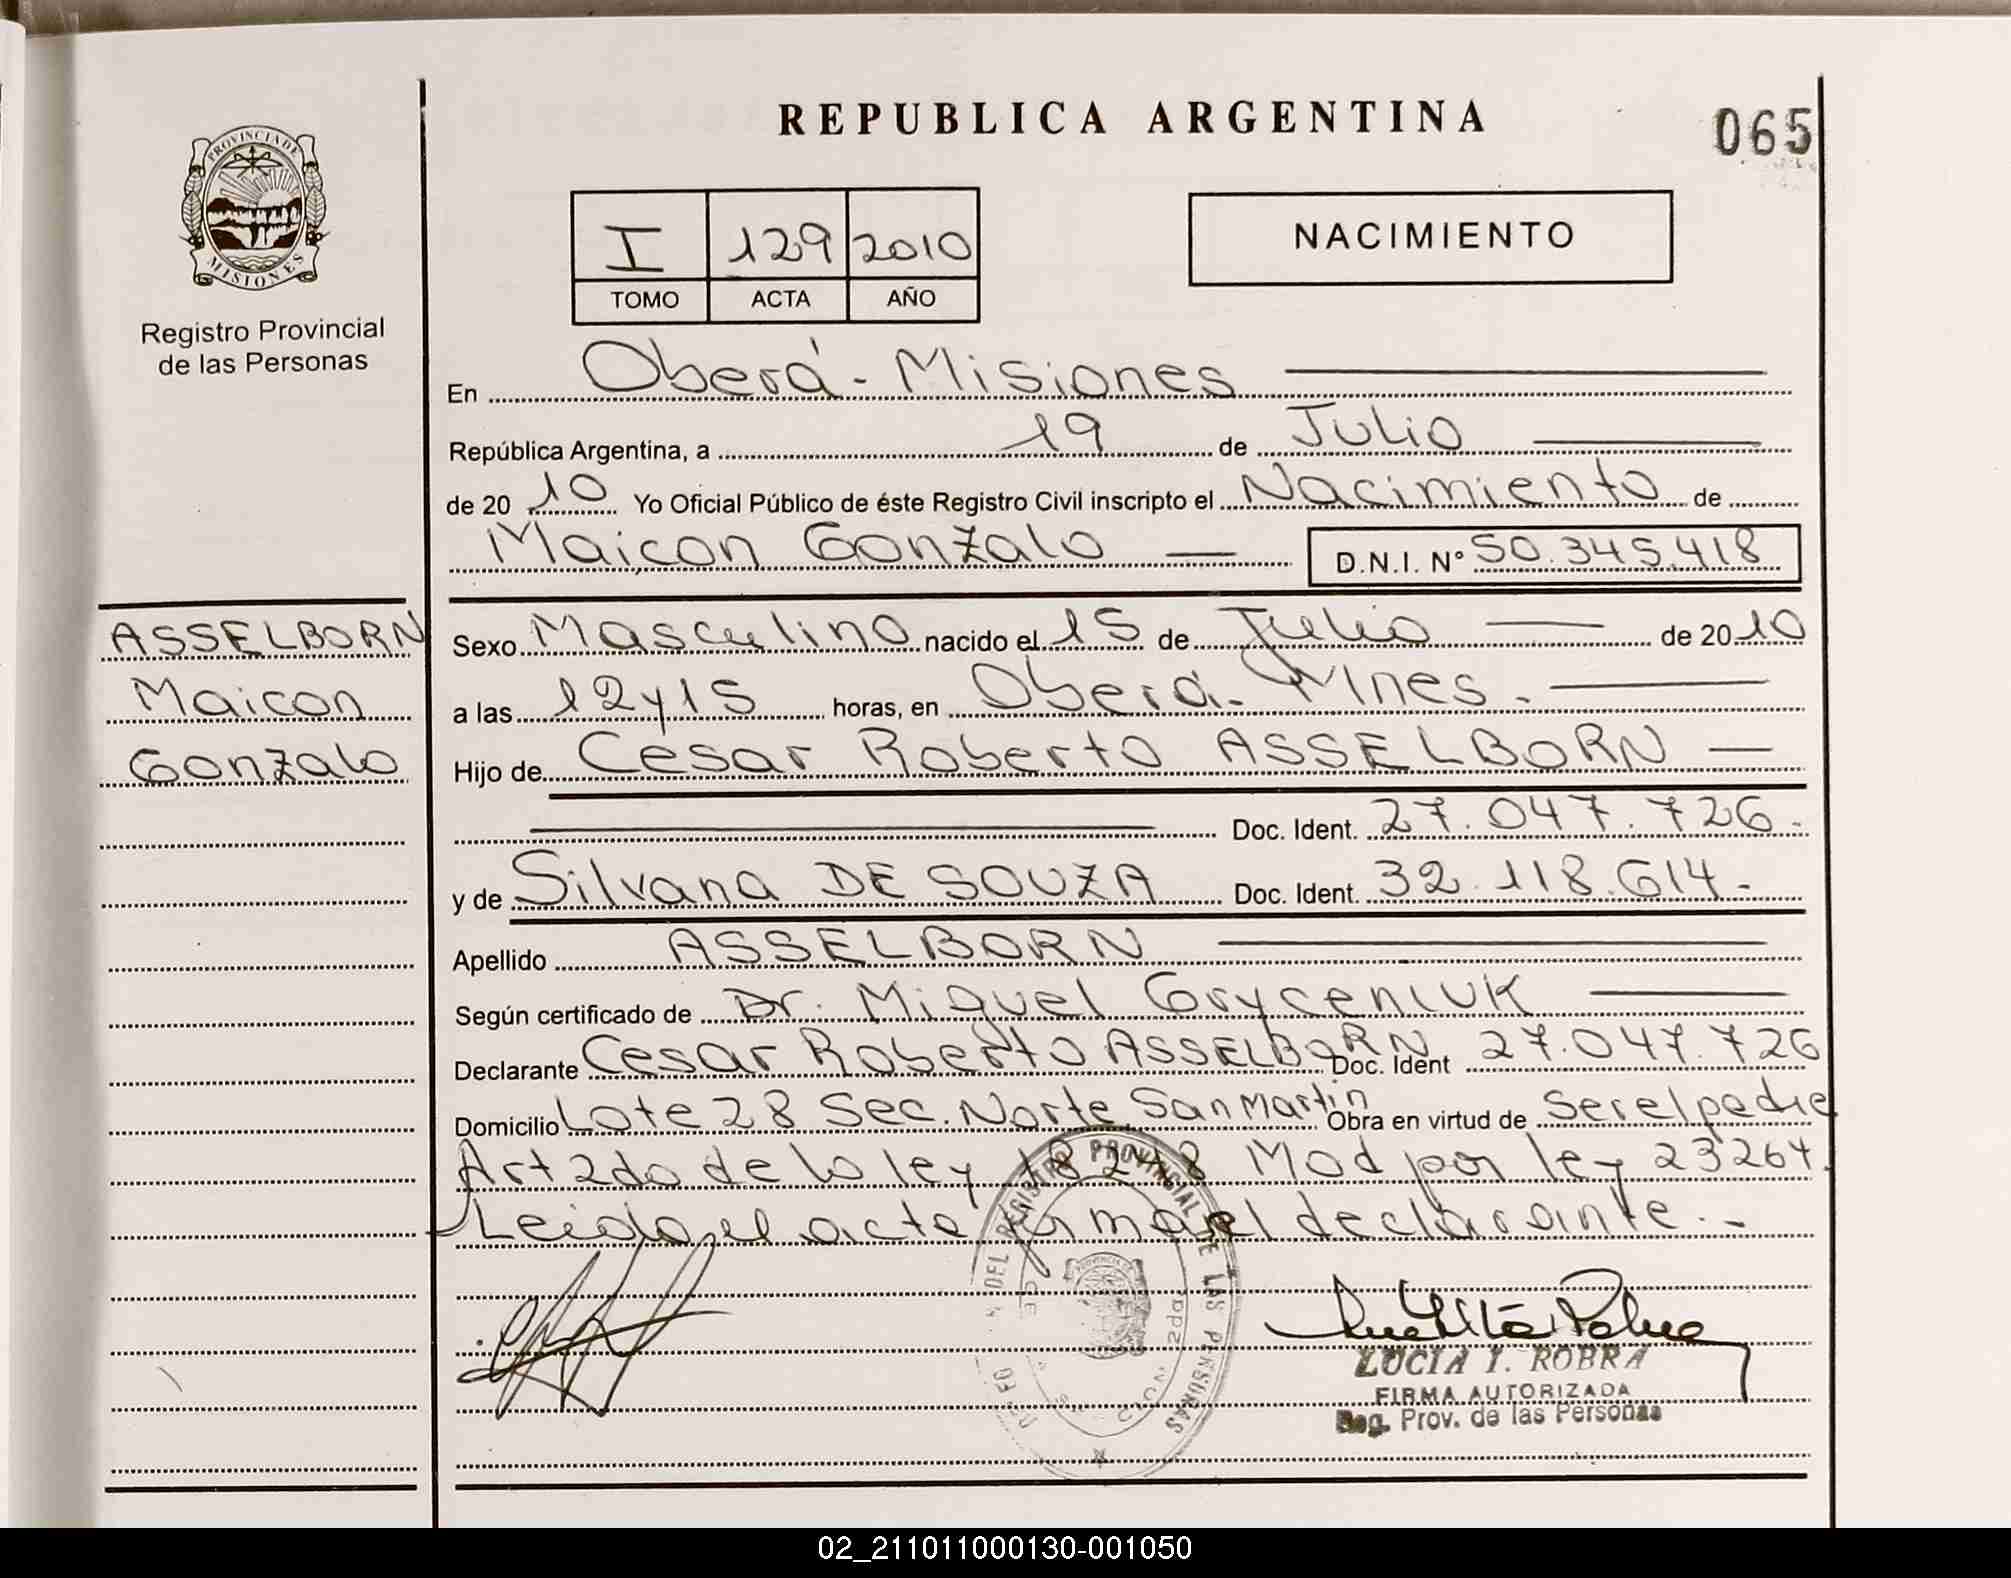 REPUBLICA ARGENTINA
065
PROVINCIA DE
MISIONES
Registro Provincial
de las Personas
I 129 2010
TOMO ACTA AÑO
NACIMIENTO
En Oberá - Misiones
República Argentina, a 19 de Julio
de 20 10 Yo Oficial Público de éste Registro Civil inscripto el Nacimiento de
Maicon Gonzalo D.N.I. Nº 50.345.418
ASSELBORN
Maicon
Gonzalo
Sexo Masculino nacido el 15 de Julio de 20 10
a las 12 y 15 horas, en Oberá - Mnes.
Hijo de Cesar Roberto ASSELBORN
Doc. Ident. 27.047.726.
y de Silvana DE SOUZA Doc. Ident. 32.118.614.
Apellido ASSELBORN
Según certificado de Dr. Miguel Gryceniuk
Declarante Cesar Roberto ASSELBORN Doc. Ident 27.047.726
Domicilio Lote 28 Sec. Norte San Martin Obra en virtud de ser el padre
Art 2do de la ley 18248 Mod por ley 23264.
Leida el acta firma el declarante.-
DEL REGISTRO PROVINCIAL DE LAS PERSONAS
LUCIA I. ROBRA
FIRMA AUTORIZADA
Reg. Prov. de las Personas
02_211011000130-001050